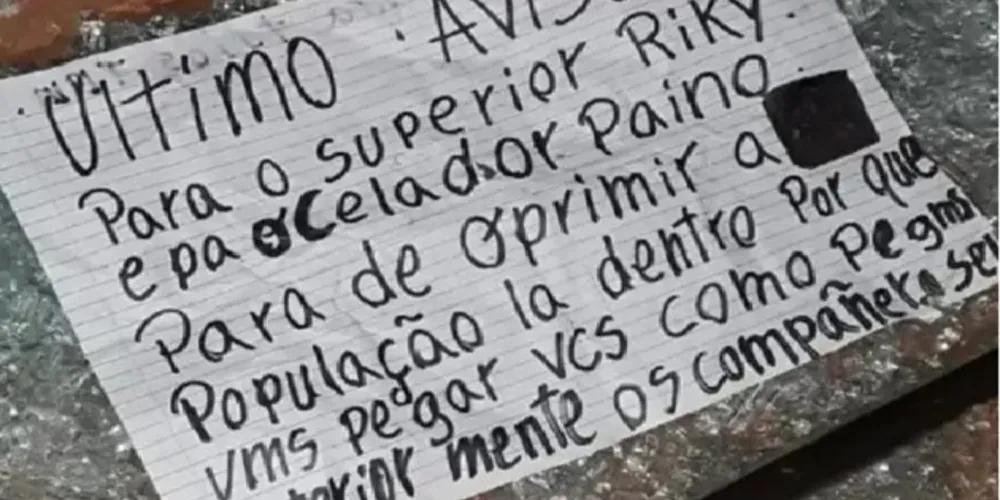 Ultimo . Aviso
Para o superior Riky.
e pa o celador Paino.
Para de oprimir a
População la dentro Por que
vms pegar vcs como Pegms
terior mente os compañero seu